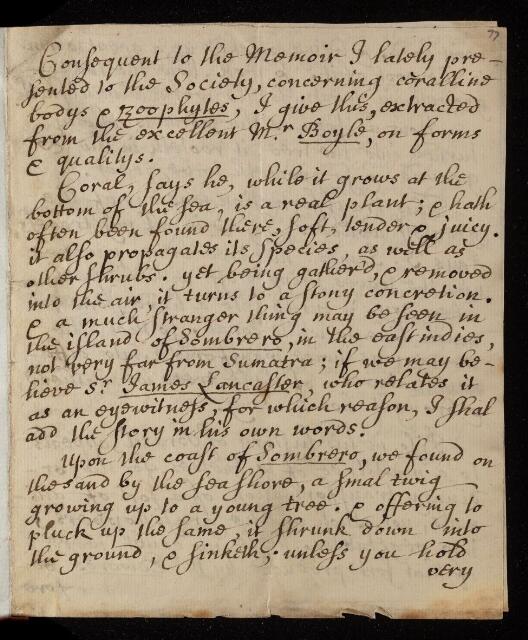 77
Consequent to the Memoir I lately pre-
sented to the Society, concerning coralline
bodys & zoophytes, I give this, extracted
from the excellent Mr. Boyle, on forms
& qualitys.
Coral, says he, while it grows at the
bottom of the sea, is a real plant; & hath
often been found there, soft, tender & juicy.
it also propagates its species, as well as
other shrubs. yet being gatherd, & removed
into the air, it turns to a stony concretion.
& a much stranger thing may be seen in
the island of Sombrero, in the east indies,
not very far from Sumatra; if we may be-
lieve Sr. James Lancaster, who relates it
as an eyewitness, for which reason, I shal
add the story in his own words.
Upon the coast of Sombrero, we found on
the sand by the sea shore, a smal twig
growing up to a young tree. & offering to
pluck up the same it shrunk down into
the ground, & sinketh; unless you hold
very